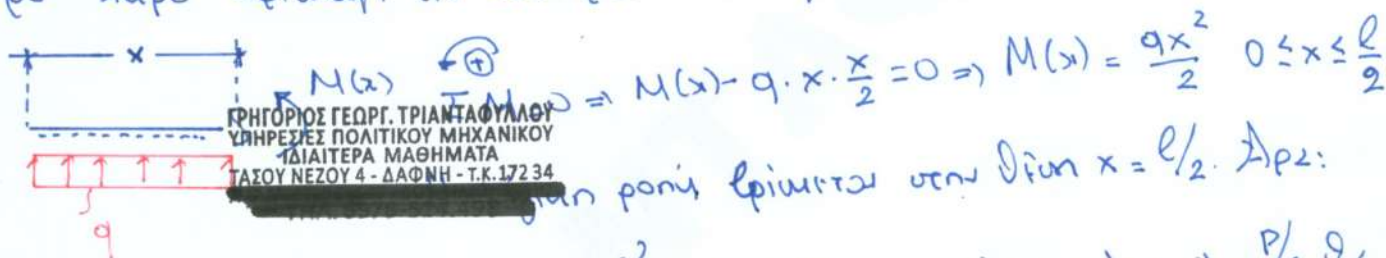 x
M(x) + ΣM=0 ⇒ M(x) - q · x · x/2 = 0 ⇒ M(x) = qx²/2 0 ≤ x ≤ l/2
ΓΡΗΓΟΡΙΟΣ ΓΕΩΡΓ. ΤΡΙΑΝΤΑΦΥΛΛΟΥ
ΥΠΗΡΕΣΙΕΣ ΠΟΛΙΤΙΚΟΥ ΜΗΧΑΝΙΚΟΥ
ΙΔΙΑΙΤΕΡΑ ΜΑΘΗΜΑΤΑ
ΤΑΣΟΥ ΝΕΖΟΥ 4 - ΔΑΦΝΗ - Τ.Κ. 172 34
ροπή βρίσκεται στην θέση x = l/2. Άρα:
q